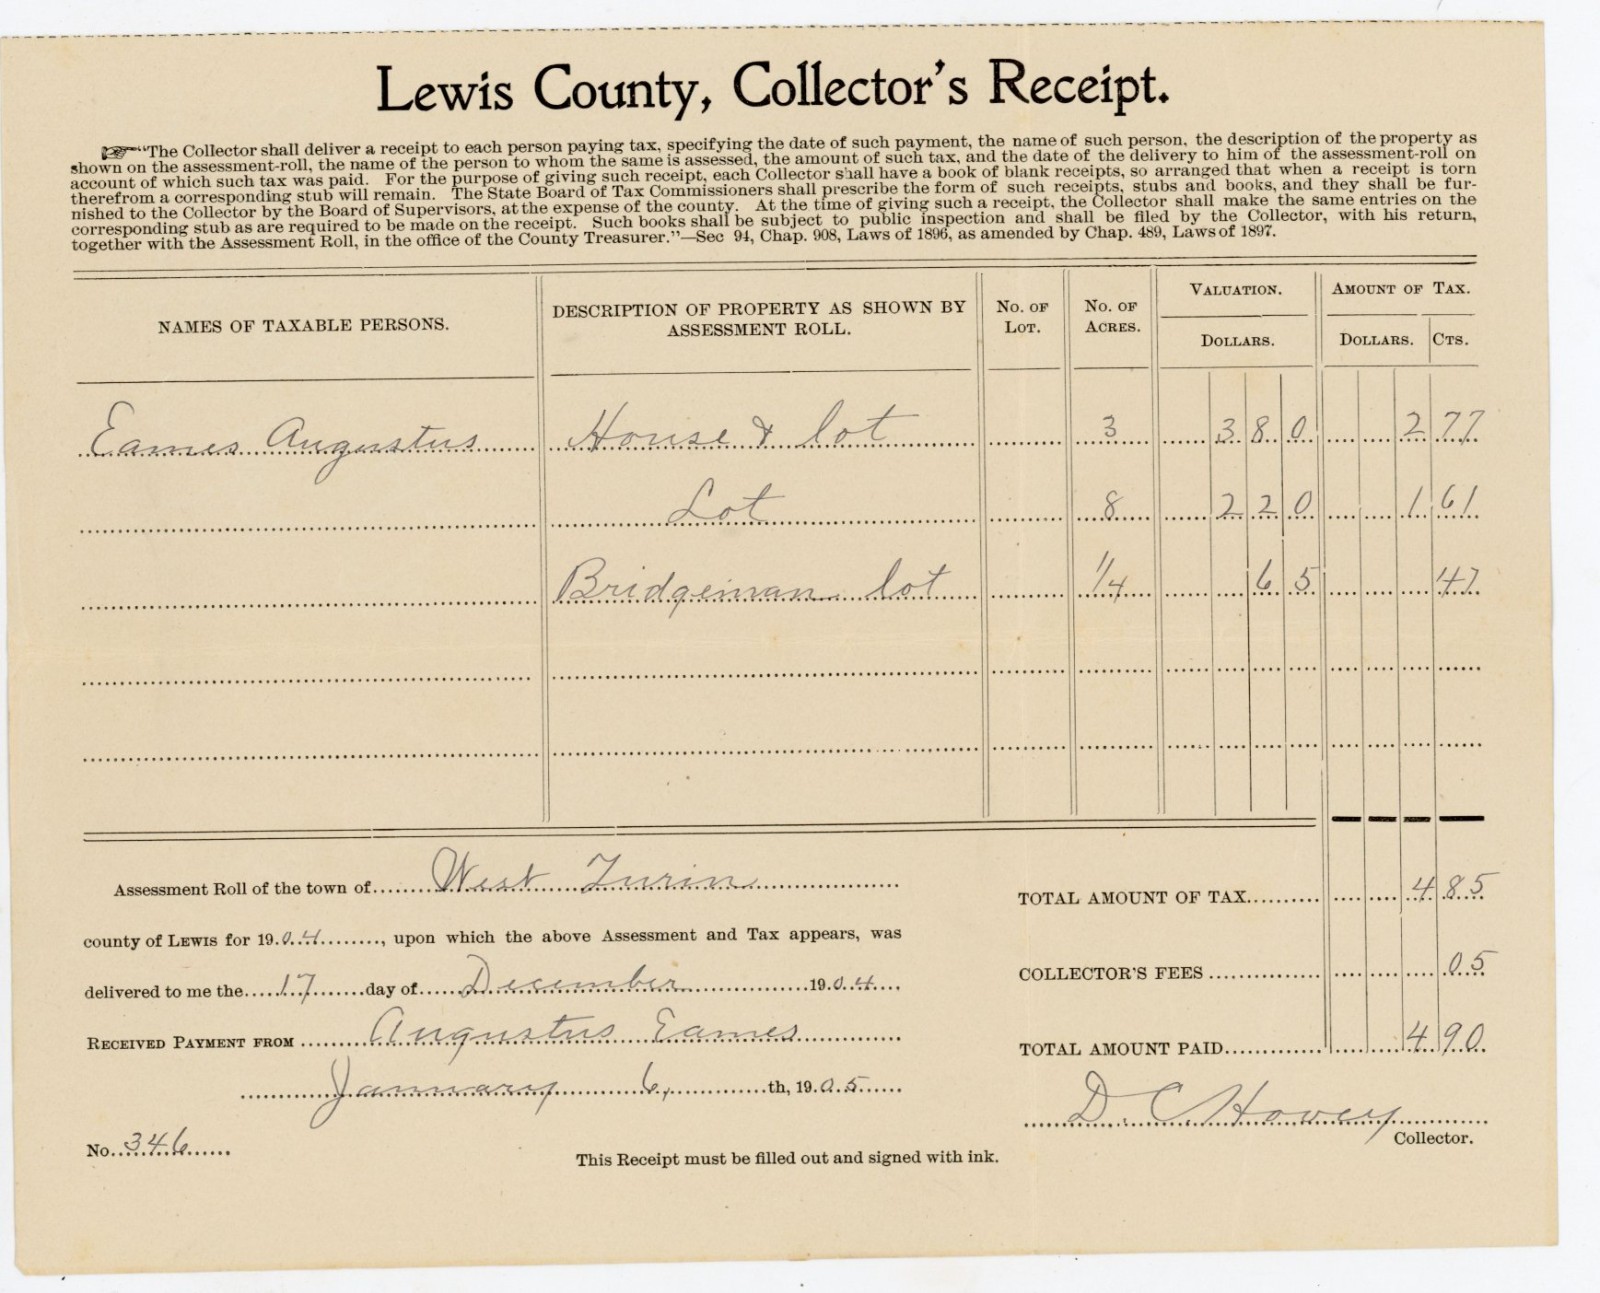 Lewis County, Collector's Receipt.
☞"The Collector shall deliver a receipt to each person paying tax, specifying the date of such payment, the name of such person, the description of the property as
shown on the assessment-roll, the name of the person to whom the same is assessed, the amount of such tax, and the date of the delivery to him of the assessment-roll on
account of which such tax was paid. For the purpose of giving such receipt, each Collector shall have a book of blank receipts, so arranged that when a receipt is torn
therefrom a corresponding stub will remain. The State Board of Tax Commissioners shall prescribe the form of such receipts, stubs and books, and they shall be fur-
nished to the Collector by the Board of Supervisors, at the expense of the county. At the time of giving such a receipt, the Collector shall make the same entries on the
corresponding stub as are required to be made on the receipt. Such books shall be subject to public inspection and shall be filed by the Collector, with his return,
together with the Assessment Roll, in the office of the County Treasurer."—Sec 94, Chap. 908, Laws of 1896, as amended by Chap. 489, Laws of 1897.
NAMES OF TAXABLE PERSONS. DESCRIPTION OF PROPERTY AS SHOWN BY ASSESSMENT ROLL. No. of Lot. No. of Acres. Valuation. Dollars. Amount of Tax. Dollars. Cts.
Eames Augustus House & lot 3 380 2 77
Lot 8 220 1 61
Bridgeman lot 1/4 65 47
Assessment Roll of the town of West Turin
county of Lewis for 1904, upon which the above Assessment and Tax appears, was
delivered to me the 17 day of December 1904
Received Payment from Augustus Eames
January 6, th, 1905
No. 346
TOTAL AMOUNT OF TAX 4 85
COLLECTOR'S FEES 05
TOTAL AMOUNT PAID 4 90
D. C. Hovey
Collector.
This Receipt must be filled out and signed with ink.